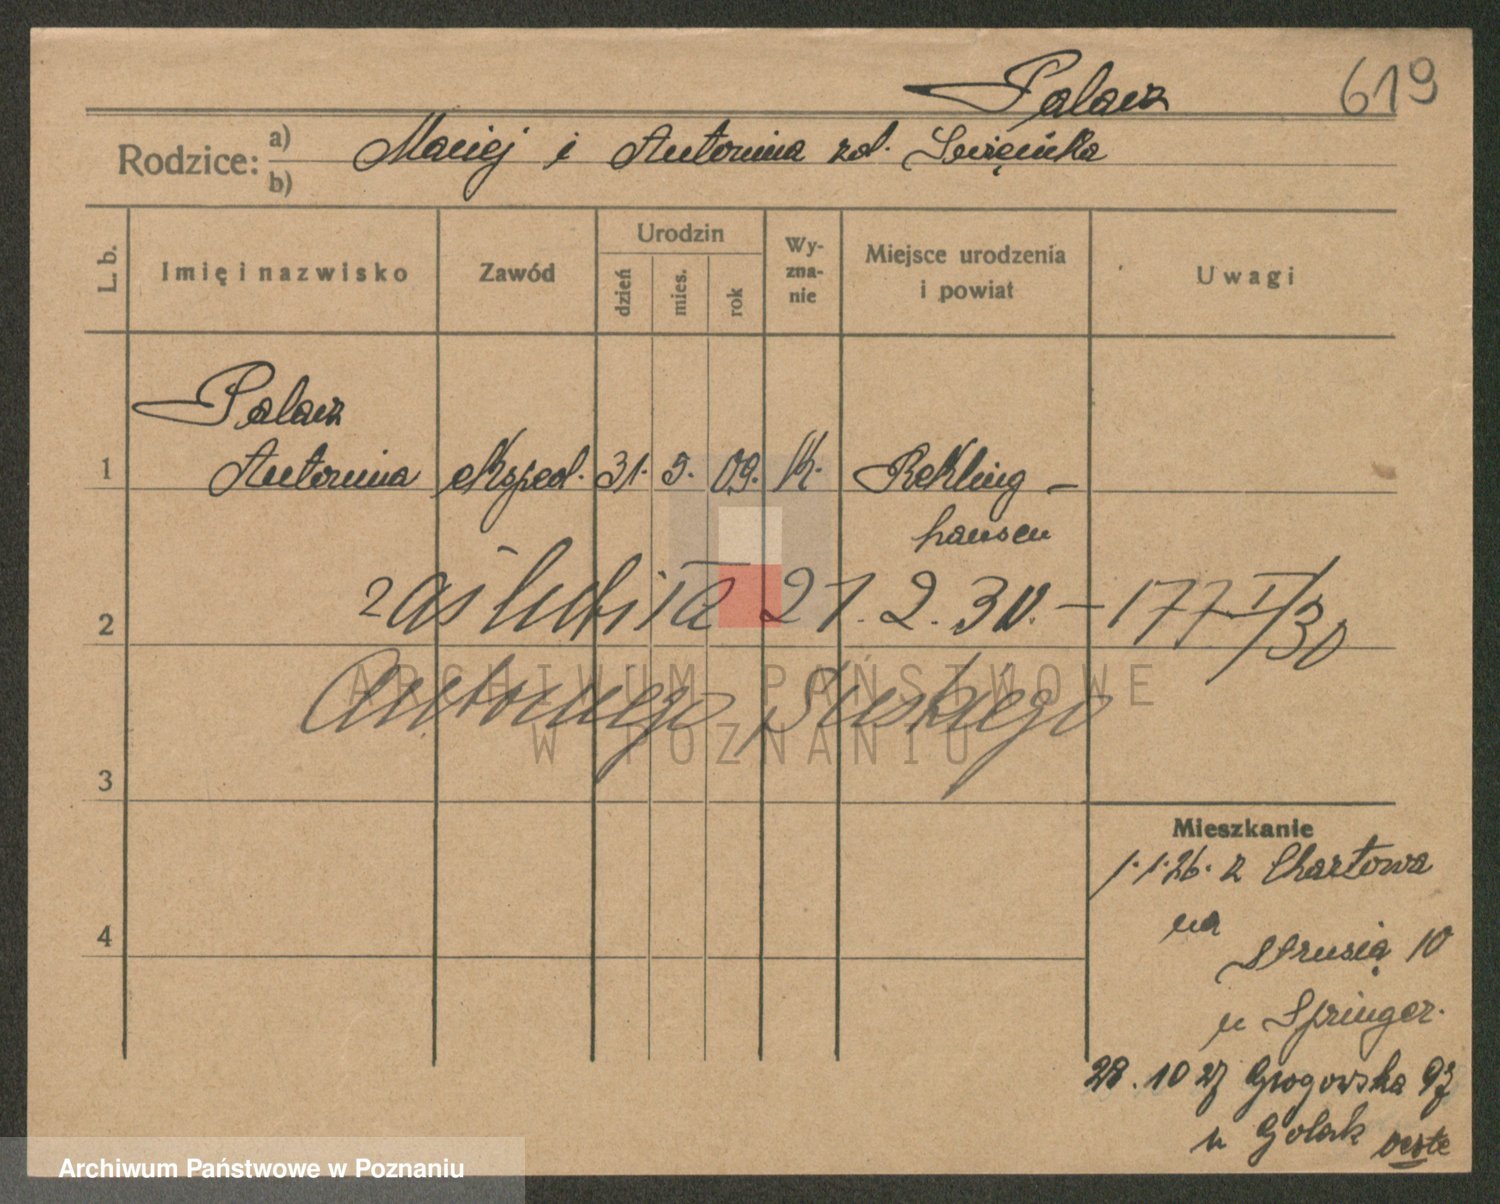 Palacz
619
Rodzice: a) b) Maciej i Antonina zd.
L. b.
Imię i nazwisko
Zawód
Urodzin
dzień
mies.
rok
Wy-
zna-
nie
Miejsce urodzenia
i powiat
Uwagi
Palacz
1 Antonina eksped. 31. 5. 09. K. Rekling-
hausen
zaślubiła 21. 2. 30. — 177 I/30
2
ARCHIWUM PAŃSTWOWE
Antoniego
W POZNANIU
3
Mieszkanie
1.1.26. z Chartowa
na
4
Strusia 10
u Springer.
28.10 27 Głogowska 97
u Golak
Archiwum Państwowe w Poznaniu